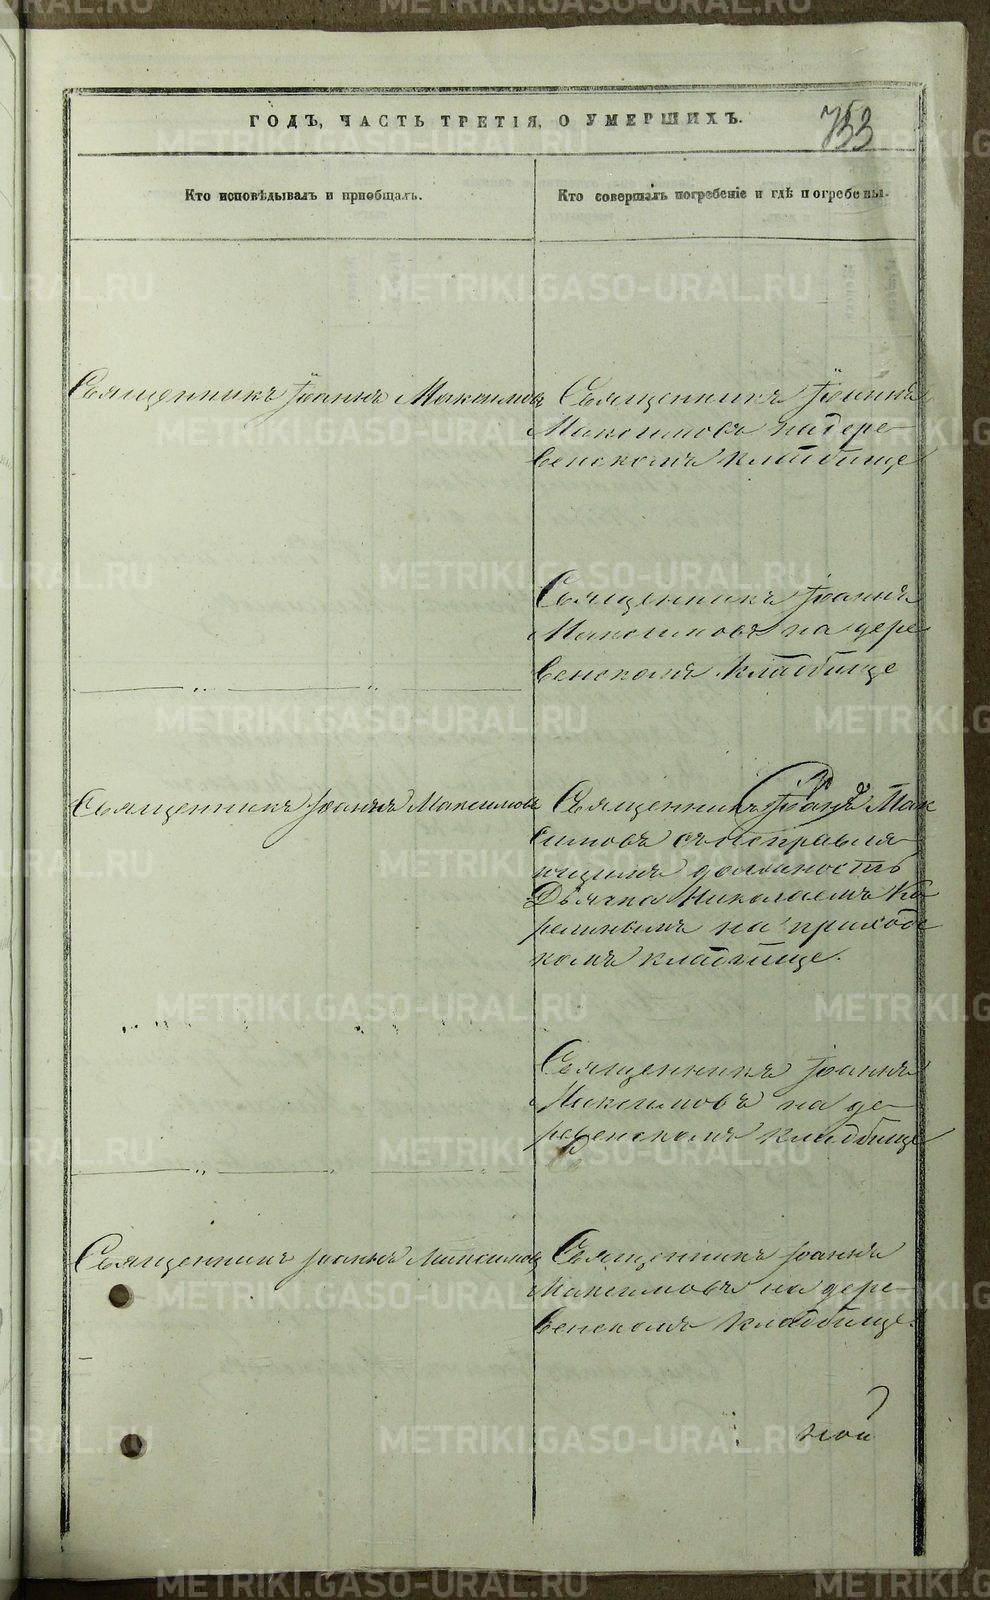 ГОДЪ, ЧАСТЬ ТРЕТІЯ, О УМЕРШИХЪ.
753
Кто исповѣдывалъ и пріобщалъ.
Кто совершалъ погребеніе и гдѣ погребены.
Священникъ Іоаннъ Максимовъ
Священникъ Іоаннъ
Максимовъ на дере-
венскомъ кладбище
Священникъ Іоаннъ
Максимовъ на дере
венскомъ кладбище
Священникъ Іоаннъ Максимовъ
Священникъ Іоаннъ Мак
симовъ съ исправля
ющимъ должность
Дьячка Николаемъ Ко
релинымъ на приходс
комъ кладбище.
Священникъ Іоаннъ
Максимовъ на де-
ревенскомъ кладбище
Священникъ Іоаннъ Максимовъ
Священникъ Іоаннъ
Максимовъ на дере-
венскомъ кладбище.
ной
METRIKI.GASO-URAL.RU